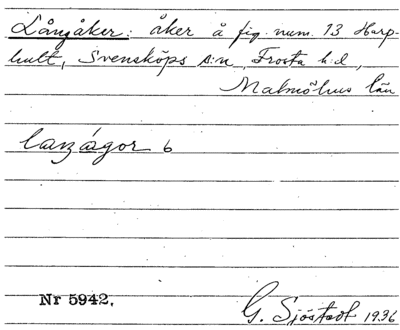 Långåker: åker å fig. num. 13 Harp-
hult, Svensköps s:n, Frosta h:d,
Malmöhus län
laŋágor 6
Nr 5942.
G. Sjöstedt 1936